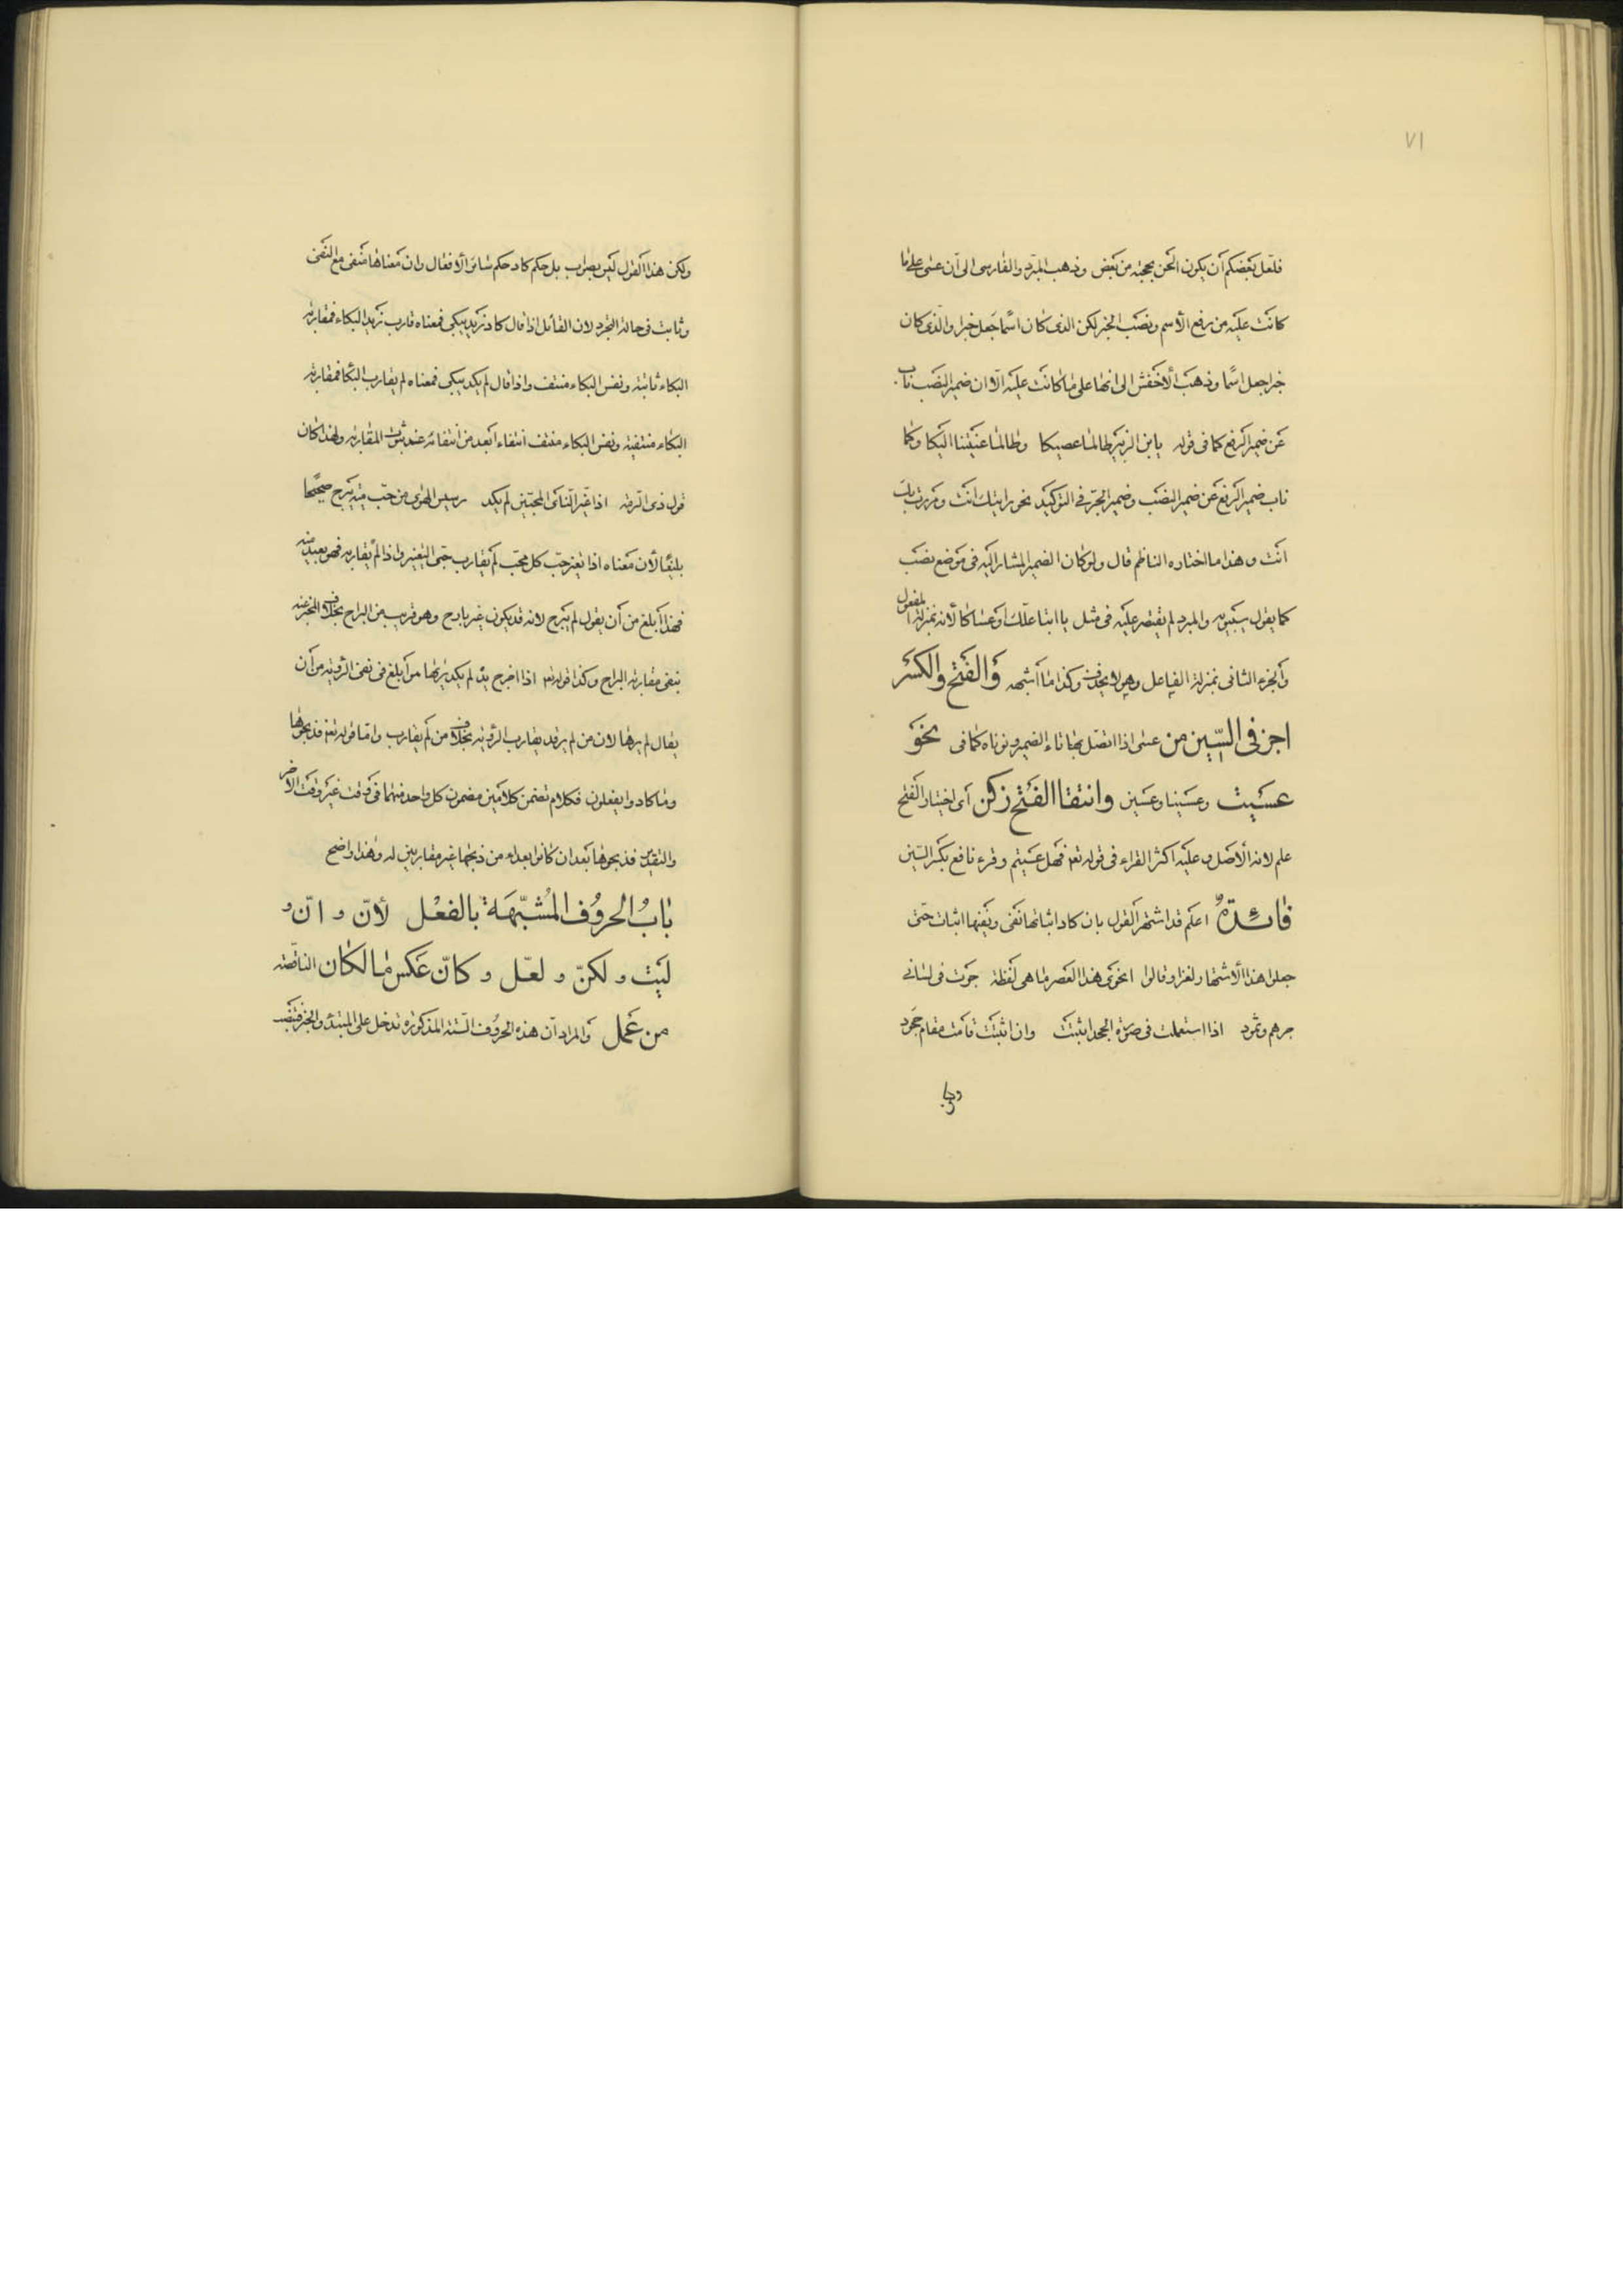 ٧١
فلعل بعضكم أن يكون الحن بحجته من بعض وذهب المبرد والفارسى الى أن عسى على ما
كانت عليه من رفع الاسم ونصب الخبر لكن الذى كان اسما جعل خبرا والذى كان
خبرا جعل اسما وذهب الأخفش الى انها على ما كانت عليه الا ان ضمير النصب ناب
عن ضمير الرفع كما فى قوله يابن الزبير طالما عصيكا وطالما عنيتنا اليكا وكما
ناب ضمير الرفع عن ضمير النصب وضمير الجر فى التوكيد نحو رايتك انت ومررت بك
انت وهذا ما اختاره الناظم قال ولو كان الضمير المشار اليه فى موضع نصب
كما يقول سيبويه والمبرد لم يقتصر عليه فى مثل يا ابتا علك او عساكا لأنه بمنزلة المفعول
والجزء الثانى بمنزلة الفاعل وهو لا يحذف وكذا ما اشبهه وَالفَتح والكسَر
اجز فى السّين من عسى اذا اتصل بها تاء الضمير ونوناه كما فى نحوَ
عسَيت وعسَينا وعسَين وانتقا الفَتح زكن أى اختيار الفتح
علم لانه الأصل وعليه اكثر القراء فى قوله تعه فهل عسيتم وقرء نافع بكسر السّين
فائدةٌ اعلم قد اشتهر القول بان كاد اثباتها نفى ونفيها اثبات حتى
جعل هذا الاشتهار لغزا وقالوا انحوى هذا العصر ما هى لفظة جرت فى لسانى
جرهم وثمود اذا استعملت فى صورة الجحد اثبتت وان اثبتت قامت مقام جحود
ولكن
ولكن هذا القول ليس بصواب بل حكم كاد حكم سائر الأفعال وان معناها منفى مع النفى
وثابت فى حالة التجرد لان القائل اذا قال كاد زيد يبكى فمعناه قارب زيد البكاء فمقاربة
البكاء ثابتة ونفس البكاء منتف واذا قال لم يكد يبكى فمعناه لم يقارب البكا فمقاربة
البكاء منتفية ونفس البكاء منتف انتفاء ابعد من انتفائه عند ثبوت المقاربة ولهذا كان
قول ذى الرمة اذا غيّر النّاى المحبّين لم يكد رسيس الهوى من حب مية يبرح صحيحًا
بليغًا لأن معناه اذا تغير حب كل محب لم يقارب حبى التغير واذا لم يقاربه فهو بعيد منه
فهذا أبلغ من أن يقول لم يبرح لانه قد يكون غير بارح وهو قريب من البراح بخلاف المخبر عنه
بنفى مقاربة البراح وكذا قوله تعه اذا اخرج يده لم يكد يريها من أبلغ فى نفى الرؤية من أن
يقال لم يرها لان من لم ير قد يقارب الرؤية بخلاف من لم يقارب واما قوله تعه فذبحوها
وما كادوا يفعلون فكلام تضمن كلامين مضمون كل واحد منهما فى وقت غير وقت الآخر
والتقدير فذبحوها بعد ان كانوا بعداء من ذبحها غير مقاربين له وهذا واضح
بَابُ الحروُف المُشبّهَة بالفعْل لأنّ و انّ و
ليَت و لكنّ و لعلّ و كانّ عَكس مَا لكَان الناقصة
من عَمل والمراد أن هذه الحروف الستة المذكورة تدخل على المبتدء والخبر فتنصب